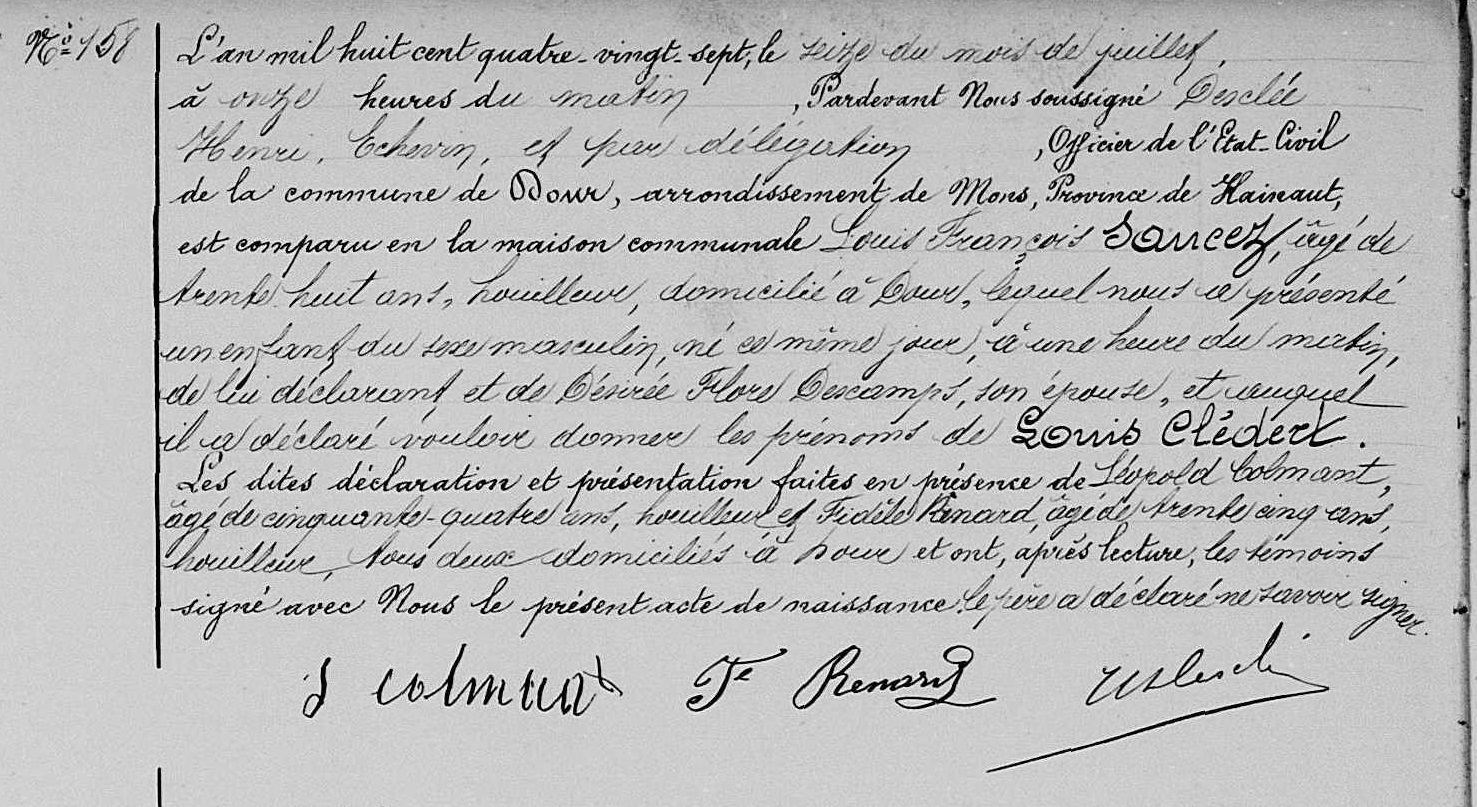 No 158
L'an mil huit cent quatre-vingt-sept, le seize du mois de juillet,
à onze heures du matin, Pardevant Nous soussigné Desclée
Henri, Echevin, et par délégation, Officier de l'Etat-Civil
de la commune de Dour, arrondissement de Mons, Province de Hainaut,
est comparu en la maison communale Louis François Saucez, âgé de
trente huit ans, houilleur, domicilié à Dour, lequel nous a présenté
un enfant du sexe masculin, né ce même jour, à une heure du matin,
de lui déclarant et de Désirée Flore Descamps, son épouse, et auquel
il a déclaré vouloir donner les prénoms de Louis Clédert.
Les dites déclaration et présentation faites en présence de Léopold Colmant,
âgé de cinquante-quatre ans, houilleur et Fidèle Renard, âgé de trente cinq ans,
houilleur, tous deux domiciliés à Dour et ont, après lecture, les témoins
signé avec Nous le présent acte de naissance. le père a déclaré ne savoir signer.
colmant Fe Renard